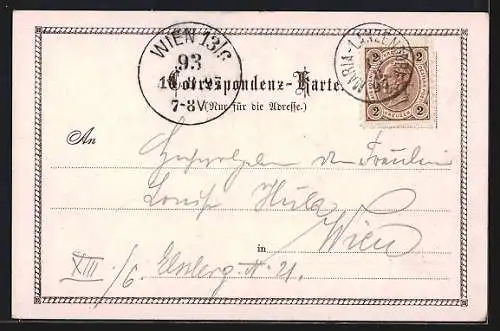 WIEN 13/6
93
7-8V
MARIA-LANZEN
2 2
2 2
Correspondenz-Karte
(Nur für die Adresse.)
An
Hochwohlgeboren dem Fräulein
Louise Hula
in Wien
XIII
/6.